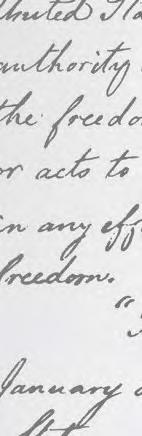 authority
the freedo
or acts to
in any eff
freedom.
"
January a